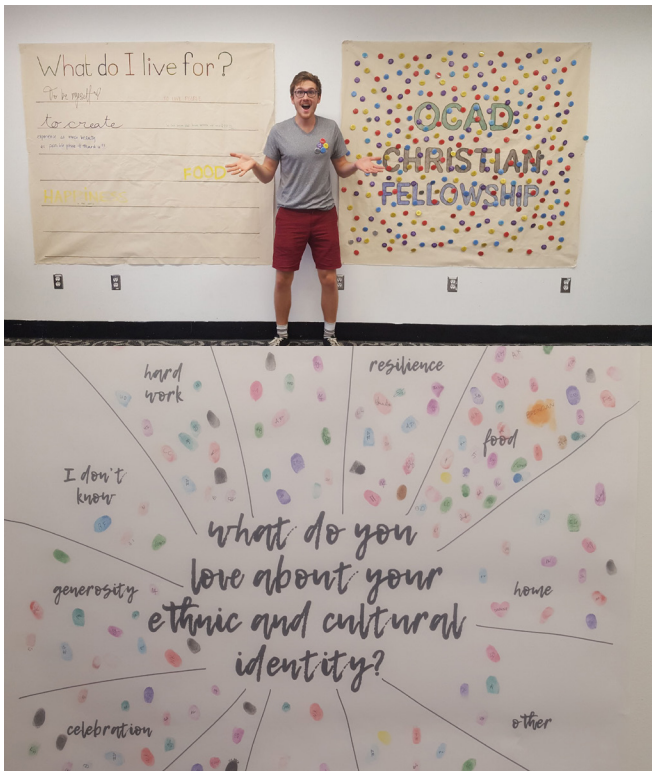 What do I live for?
To be myself
to create
FOOD
HAPPINESS
OCAD
CHRISTIAN
FELLOWSHIP
hard
work
resilience
food
I don't
know
what do you
love about your
ethnic and cultural
identity?
generosity
home
celebration
other